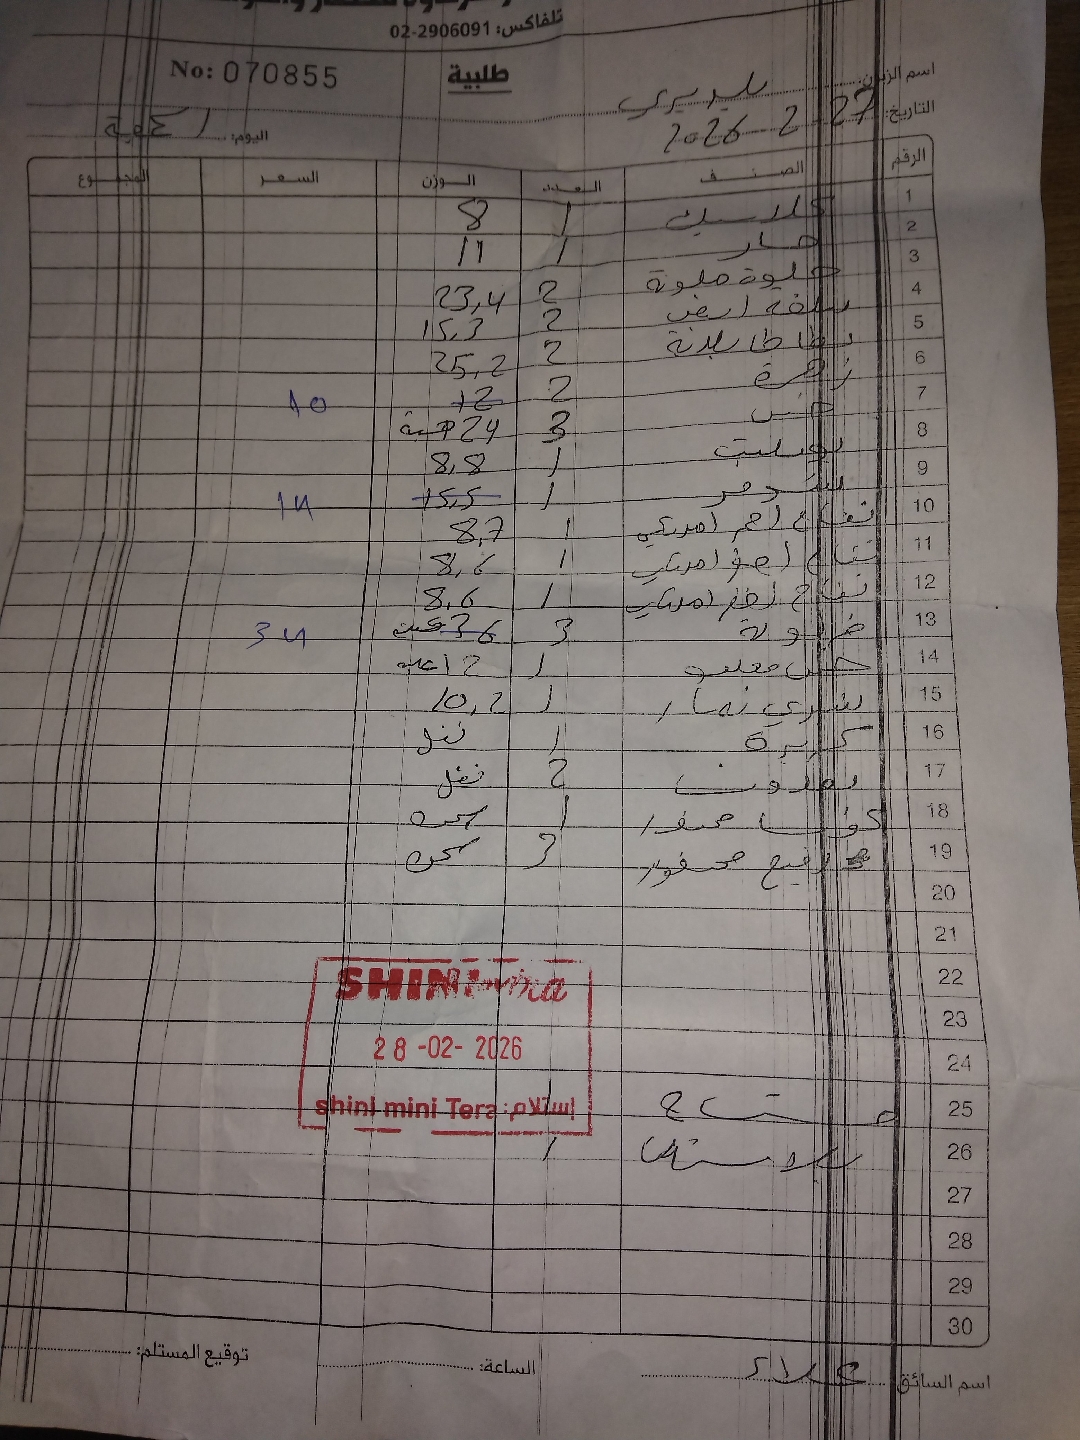 تلفاكس: 02-2906091
No: 070855
طلبية
اسم الزبون:
التاريخ: 27-2-2026
اليوم: الجمعة
الرقم الصنف العدد الوزن السعر المجموع
1 كلاسيك 1 8
2 حار 1 11
3 حلوة ملونة 2 23,4
4 2 15,3
5 بطاطا بلدية 2 25,2
6 زهرة 2 12 10
7 خس 3 24 حبة
8 1 8,8
9 1 15,5 14
10 تفاح احمر امريكي 1 8,7
11 تفاح اصفر امريكي 1 8,6
12 تفاح اخضر امريكي 1 8,6
13 3 36 34
14 خس 1 12
15 1 10,2
16 كزبرة 1
17 بقدونس 2
18 كوسا محفور 1
19 محفور 3
20
21
22
23
24
25 1
26 1
27
28
29
30
SHINI mina
28-02-2026
إستلام: shini mini Tera
اسم السائق: علاء
الساعة:
توقيع المستلم: